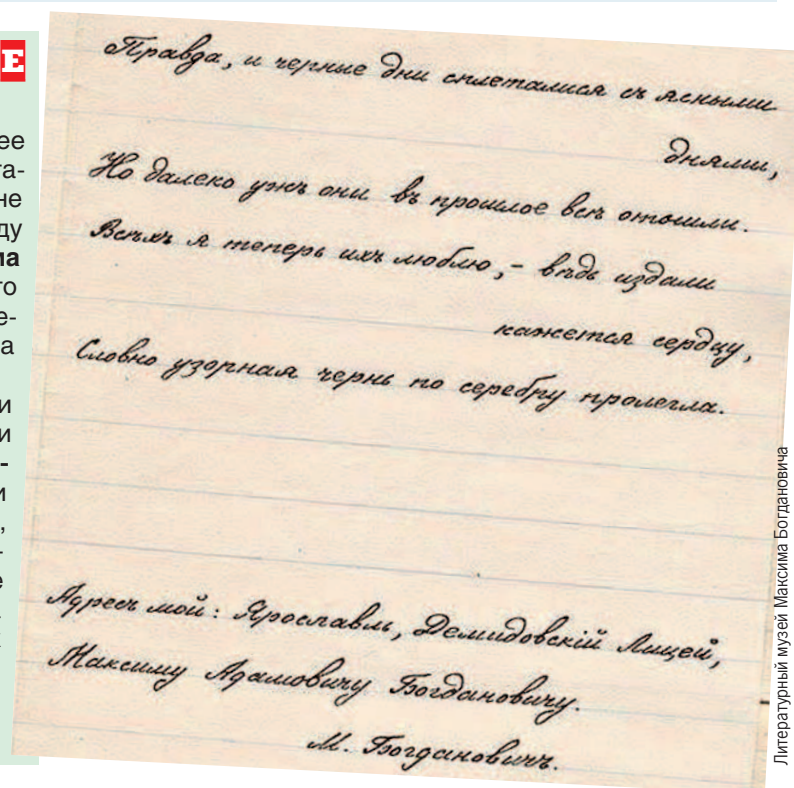 Е
ее
та-
не
ду
ма
го
е-
а
и
и
-
и
,
-
е
.
Правда, и черные дни сплеталися съ ясными
днями,
Но далеко ужъ они въ прошлое всѣ отошли.
Всѣхъ я теперь ихъ люблю,- вѣдь издали
кажется сердцу,
Словно узорная чернь по серебру пролегла.
Адресъ мой: Ярославль, Демидовскій Лицей,
Максиму Адамовичу Богдановичу.
М. Богдановичъ.
Литературный музей Максима Богдановича